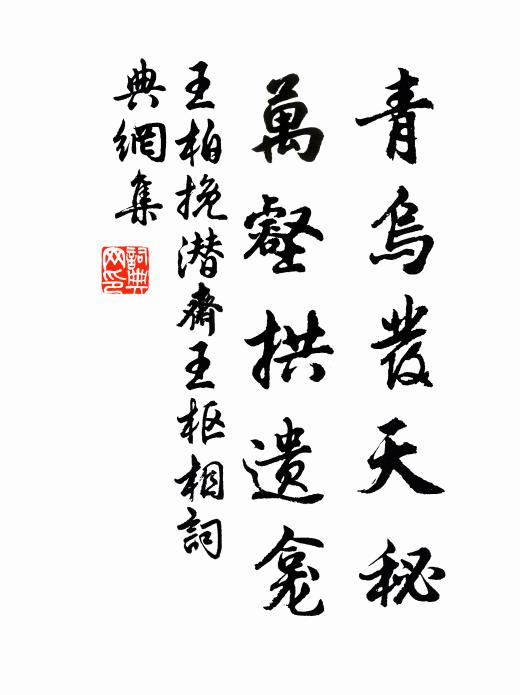 青烏發天秘
萬壑拱遺龕
王柏挽潜齋王枢相詞
典網集
詞典網印